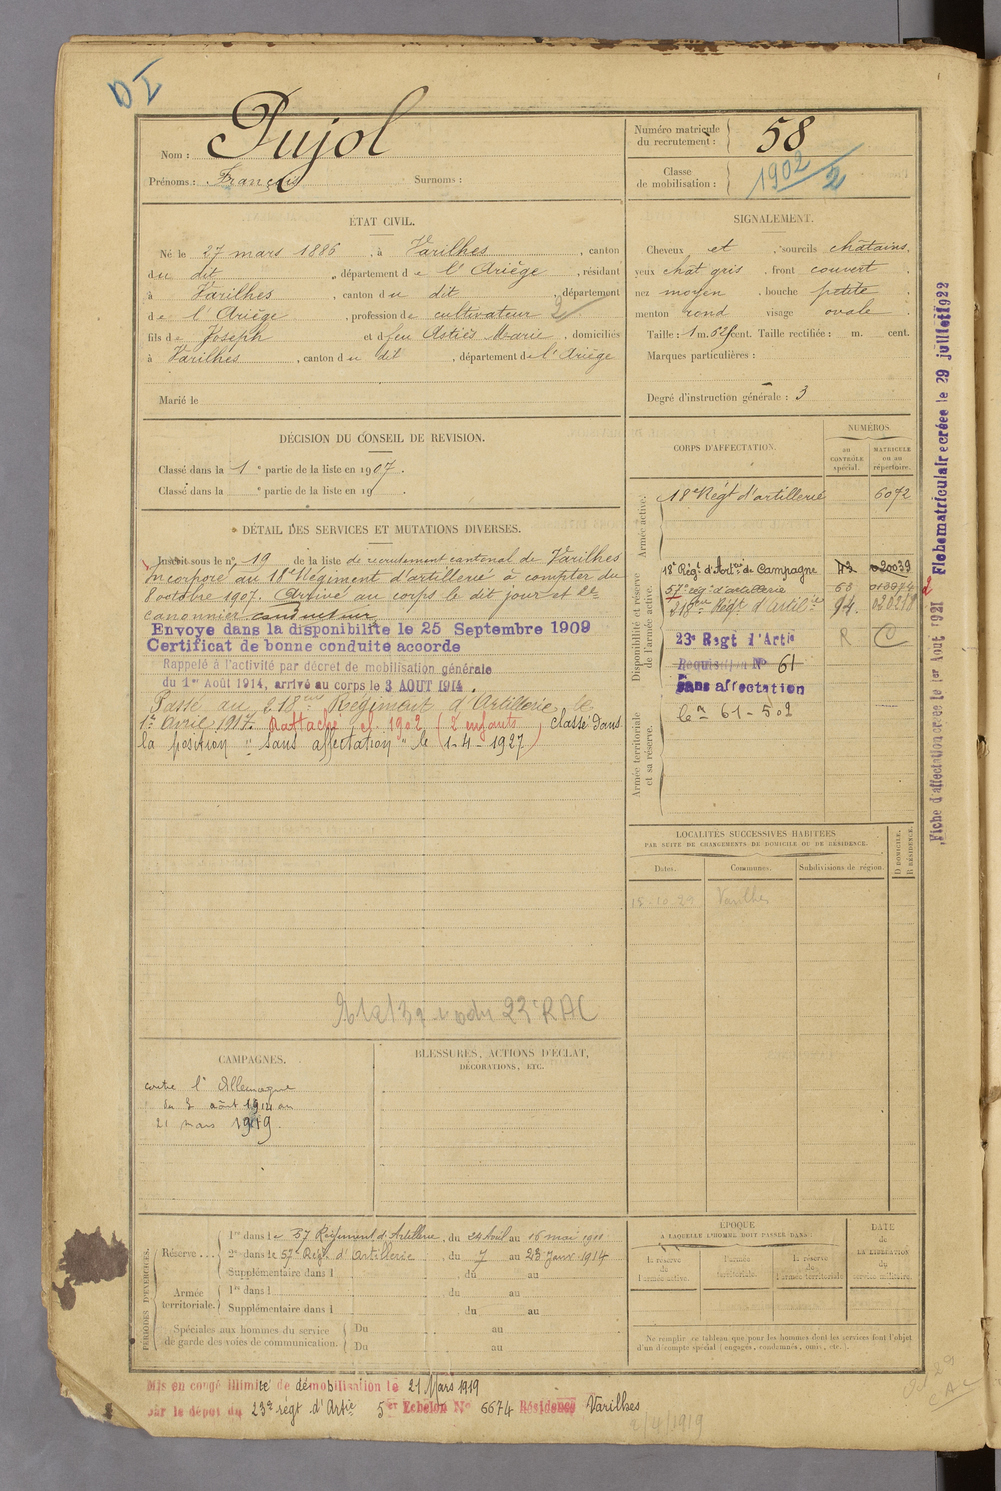 DI
Nom : Pujol
Prénoms : François Surnoms :
Numéro matricule
du recrutement : 58
Classe
de mobilisation : 1902/2
ÉTAT CIVIL.
Né le 27 mars 1886, à Varilhes, canton
du dit, département de l'Ariège, résidant
à Varilhes, canton du dit, département
de l'Ariège, profession de cultivateur 2
fils de Joseph et d feu Astiès Marie, domiciliés
à Varilhes, canton du dit, département de l'Ariège
Marié le
SIGNALEMENT.
Cheveux et sourcils châtains.
yeux chat gris, front couvert
nez moyen, bouche petite
menton rond visage ovale
Taille : 1 m. 62 cent. Taille rectifiée : m. cent.
Marques particulières :
Degré d'instruction générale : 3
DÉCISION DU CONSEIL DE REVISION.
Classé dans la 1e partie de la liste en 1907.
Classé dans la e partie de la liste en 19
DÉTAIL DES SERVICES ET MUTATIONS DIVERSES.
Inscrit sous le n° 19 de la liste de recrutement cantonal de Varilhes
Incorporé au 18e Régiment d'artillerie à compter du
8 octobre 1907. Arrivé au corps le dit jour et 2e
canonnier conducteur
Envoye dans la disponibilite le 25 Septembre 1909
Certificat de bonne conduite accorde
Rappelé à l'activité par décret de mobilisation générale
du 1er Août 1914, arrivé au corps le 3 AOUT 1914.
Passé au 218eme Régiment d'Artillerie le
1er Avril 1917. Rattaché cl. 1902 (2 enfants) classé dans
la position "sans affectation" le 1-4-1927
23e RAC
CORPS D'AFFECTATION.
NUMÉROS.
au
CONTRÔLE
spécial.
MATRICULE
ou au
répertoire.
Armée active.
18e Régt d'artillerie 6072
Disponibilité et réserve
de l'armée active.
18e Régt d'Artrie de Campagne 43 020039
57e Régt d'artillerie 63 013974
218eme Régt d'Artilie 94
23e Regt d'Artie R C
Requisition N° 61
Sans affectation
Armée territoriale
et sa réserve.
61-502
Fiche d'affectation créée le 1er Aout 1921 Fiche matriculaire créée le 29 juillet 1922
LOCALITÉS SUCCESSIVES HABITÉES
PAR SUITE DE CHANGEMENTS DE DOMICILE OU DE RÉSIDENCE.
Dates. Communes. Subdivisions de région. D DOMICILE. R RÉSIDENCE.
15-10-29 Varilhes
CAMPAGNES.
contre l'Allemagne
du 3 août 1914 au
21 mars 1919.
BLESSURES, ACTIONS D'ÉCLAT,
DÉCORATIONS, ETC.
PÉRIODES D'EXERCICES.
Réserve...
1re dans le 57 Régiment d'Artillerie, du 24 Avril au 16 mai 1911
2e dans le 57e Régt d'Artillerie du 7 au 23 Janv. 1914
Supplémentaire dans l du au
Armée
territoriale.
1re dans l du au
Supplémentaire dans l du au
Spéciales aux hommes du service
de garde des voies de communication.
Du au
Du au
ÉPOQUE
A LAQUELLE L'HOMME DOIT PASSER DANS
la réserve
de
l'armée active.
l'armée
territoriale.
la réserve
de
l'armée territoriale
DATE
de
LA LIBÉRATION
du
service militaire.
Ne remplir ce tableau que pour les hommes dont les services font l'objet
d'un décompte spécial (engagés, condamnés, omis, etc.).
Mis en congé illimité de démobilisation le 21 Mars 1919
par le dépôt du 23e régt d'Artie 5er Echelon N° 6674 Résidence Varilhes
2/4/1919